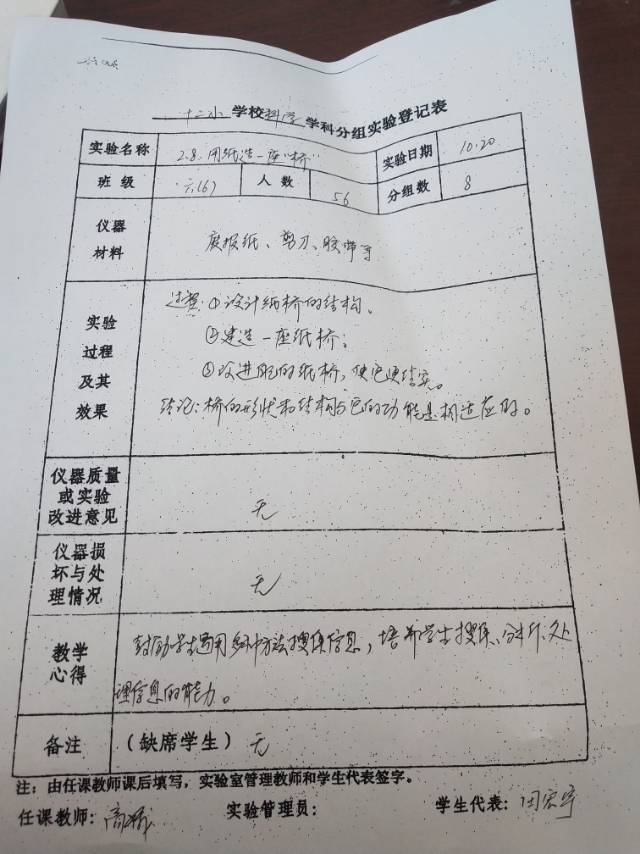 十二小 学校 科学 学科分组实验登记表
实验名称 2.8.用纸造一座"桥" 实验日期 10.20
班级 六(6) 人数 56 分组数 8
仪器
材料
废报纸、剪刀、胶带等
实验
过程
及其
效果
过程:①设计纸桥的结构。
②建造一座纸桥。
③改进我的纸桥,使它更结实。
结论:桥的形状和结构与它的功能是相适应的。
仪器质量
或实验
改进意见
无
仪器损
坏与处
理情况
无
教学
心得
鼓励学生运用多种方法搜集信息,培养学生搜集、分析、处
理信息的能力。
备注 (缺席学生) 无
注:由任课教师课后填写,实验室管理教师和学生代表签字。
任课教师: 实验管理员: 学生代表: